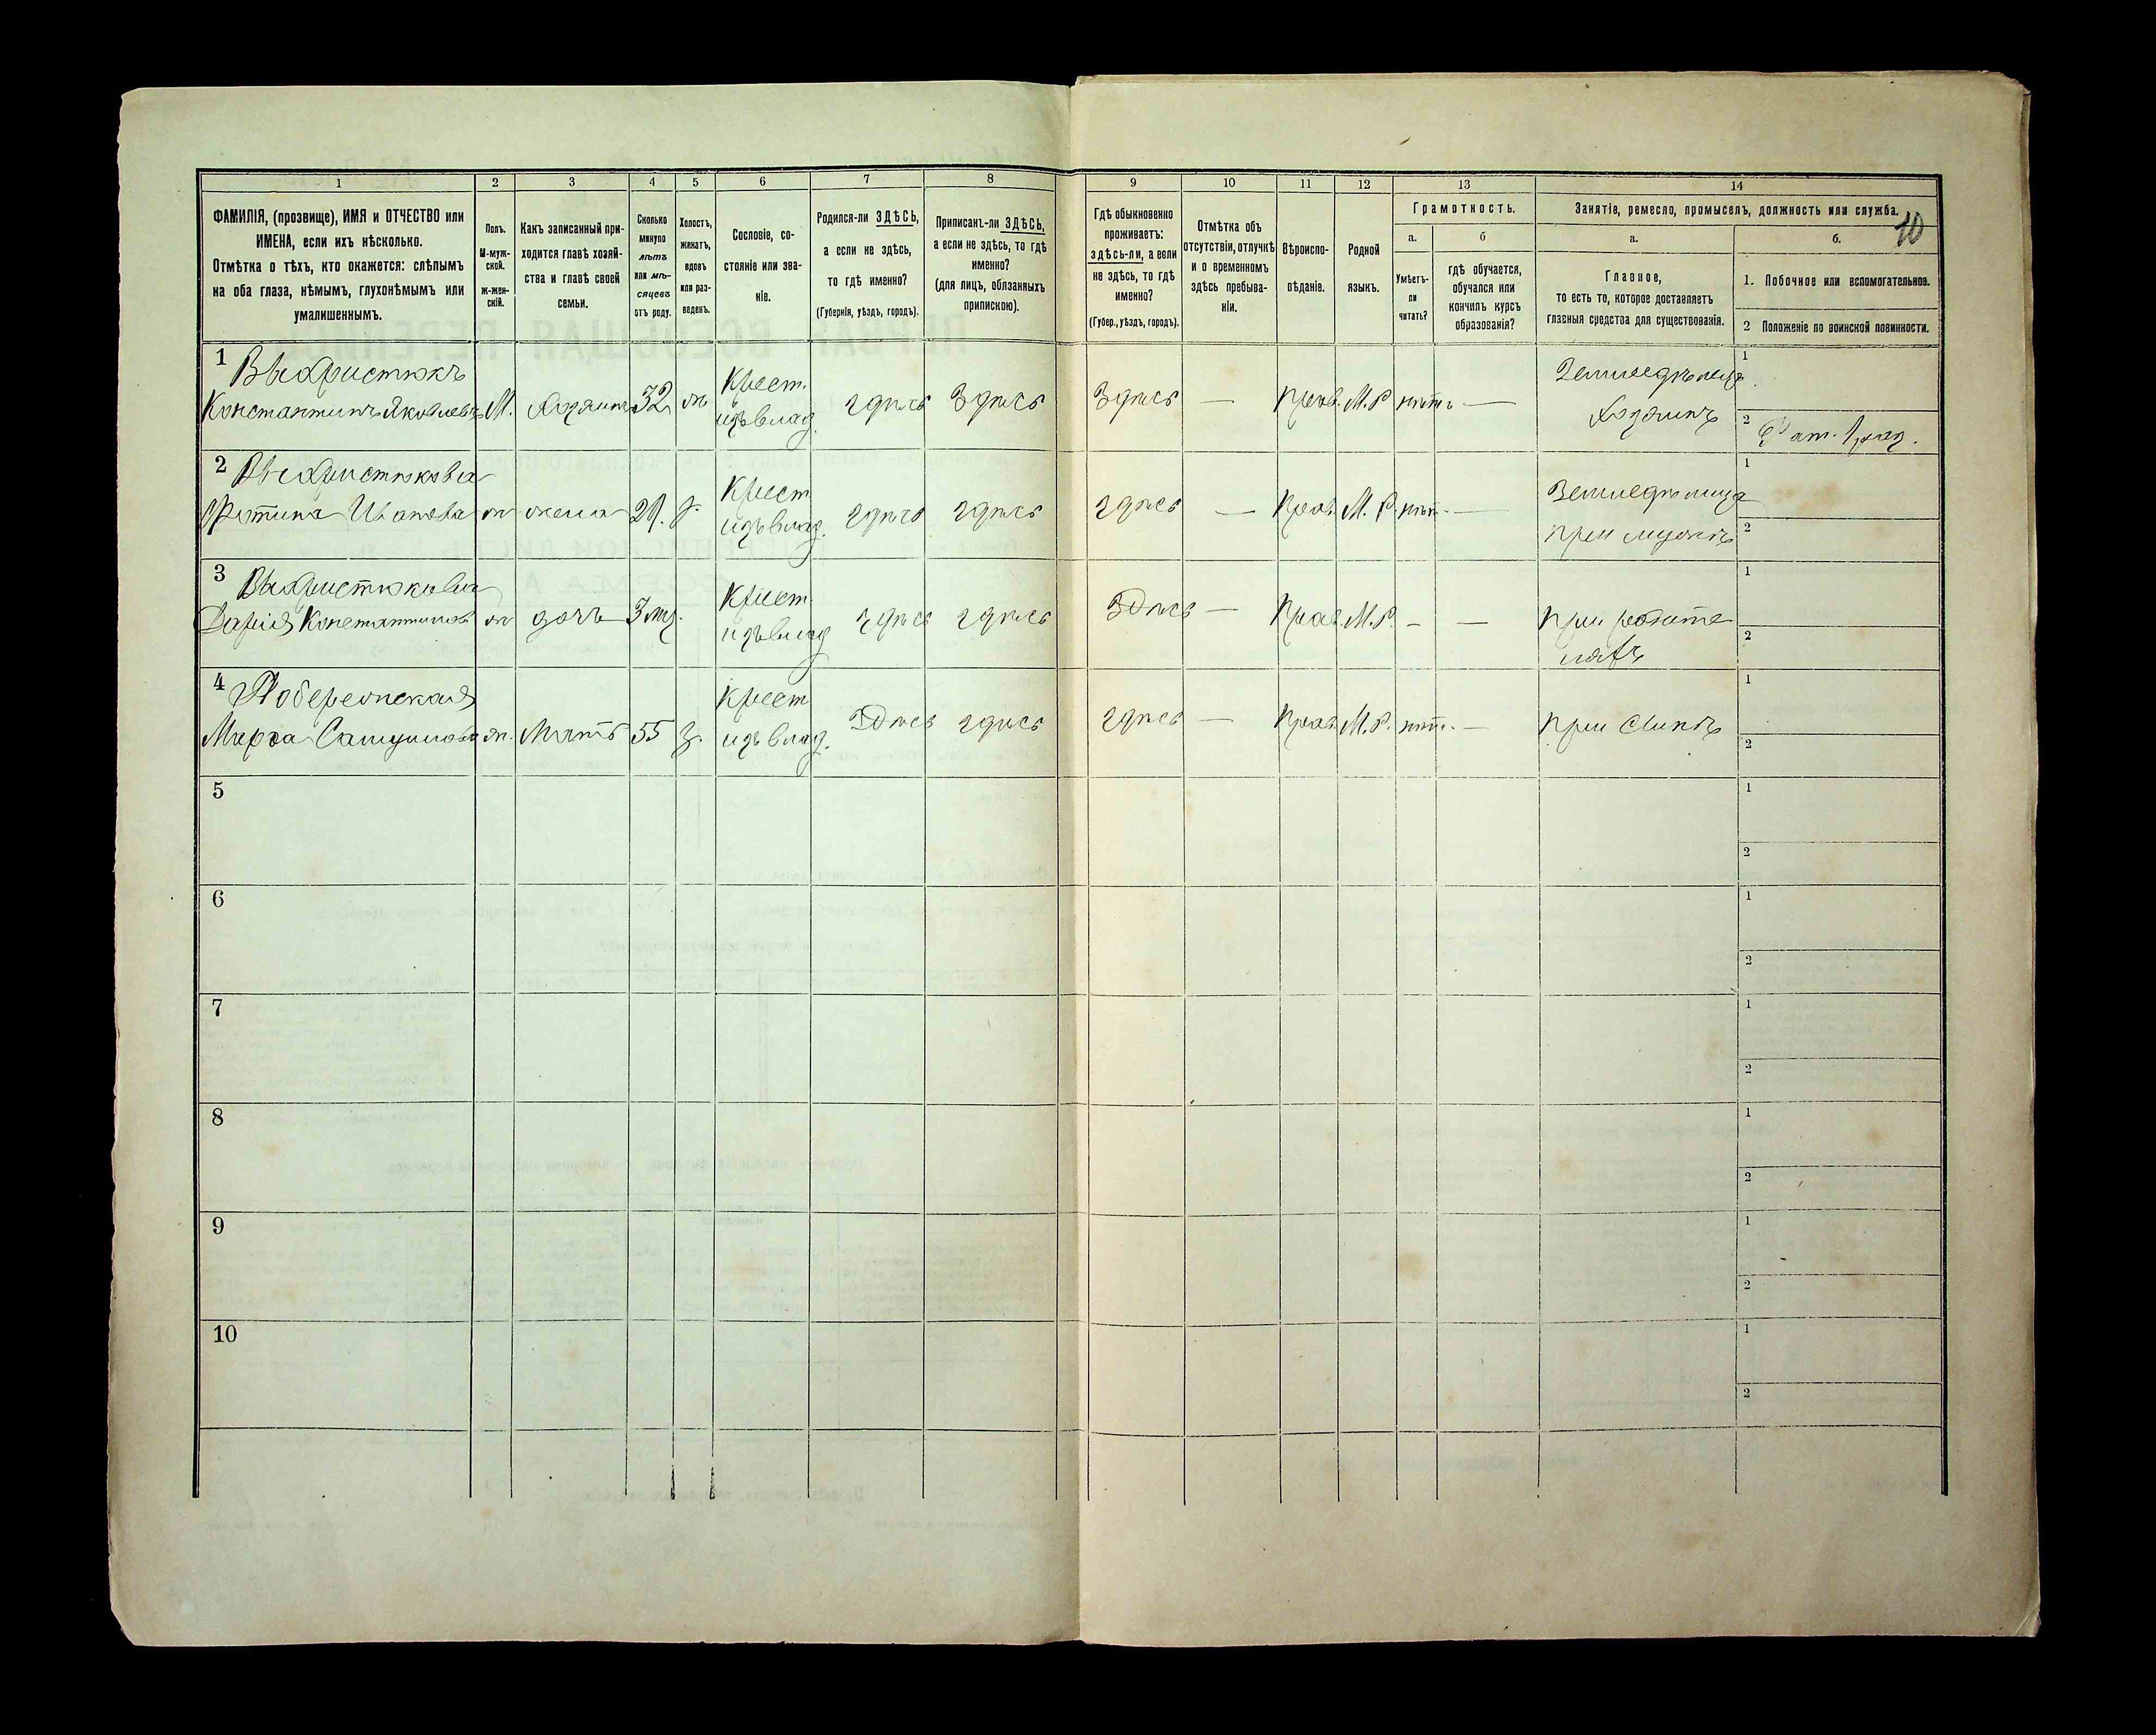 10
1 2 3 4 5 6 7 8 9 10 11 12 13 14
ФАМИЛІЯ, (прозвище), ИМЯ и ОТЧЕСТВО или
ИМЕНА, если ихъ нѣсколько.
Отмѣтка о тѣхъ, кто окажется: слѣпымъ
на оба глаза, нѣмымъ, глухонѣмымъ или
умалишеннымъ.
Полъ.
М-муж-
ской.
ж-жен-
скій.
Какъ записанный при-
ходится главѣ хозяй-
ства и главѣ своей
семьи.
Сколько
минуло
лѣтъ
или мѣ-
сяцевъ
отъ роду.
Холостъ,
женатъ,
вдовъ
или раз-
веденъ.
Сословіе, со-
стояніе или зва-
ніе.
Родился-ли ЗДѢСЬ,
а если не здѣсь,
то гдѣ именно?
(Губернія, уѣздъ, городъ).
Приписанъ-ли ЗДѢСЬ,
а если не здѣсь, то гдѣ
именно?
(для лицъ, обязанныхъ
припискою).
Гдѣ обыкновенно
проживаетъ:
здѣсь-ли, а если
не здѣсь, то гдѣ
именно?
(Губер., уѣздъ, городъ).
Отмѣтка объ
отсутствіи, отлучкѣ
и о временномъ
здѣсь пребыва-
ніи.
Вѣроиспо-
вѣданіе.
Родной
языкъ.
Грамотность.
а.
Умѣетъ-
ли
читать?
б
гдѣ обучается,
обучался или
кончилъ курсъ
образованія?
Занятіе, ремесло, промыселъ, должность или служба.
а.
Главное,
то есть то, которое доставляетъ
главныя средства для существованія.
б.
1. Побочное или вспомогательное.
2 Положеніе по воинской повинности.
1 Выхристюкъ
Константинъ Яковлевъ М. Хозяинъ 32 ж Крест. изъ влад. здѣсь Здѣсь Здѣсь — Прав. М.Р. нѣтъ — Земледѣлецъ Хозяинъ
1
2 Рат. 1 раз.
2 Выхристюкова
Фотина Иванова ж жена 29. з. Крест изъ влад. здѣсь здѣсь здѣсь — Прав. М.Р. нѣт. — Земледѣлица при мужѣ
1
2
3 Выхристюкова
Дарія Константинов ж дочь 3 мц. Крест. изъ влад здѣсь здѣсь Здѣсь — Прав. М.Р. — — При родите
ляхъ
1
2
4 Побережская
Марѳа Самуилова ж. Мать 55 з. Крест изъ влад. Здѣсь здѣсь здѣсь — Прав. М.Р. нѣт. — При Сынѣ
1
2
5
1
2
6
1
2
7
1
2
8
1
2
9
1
2
10
1
2